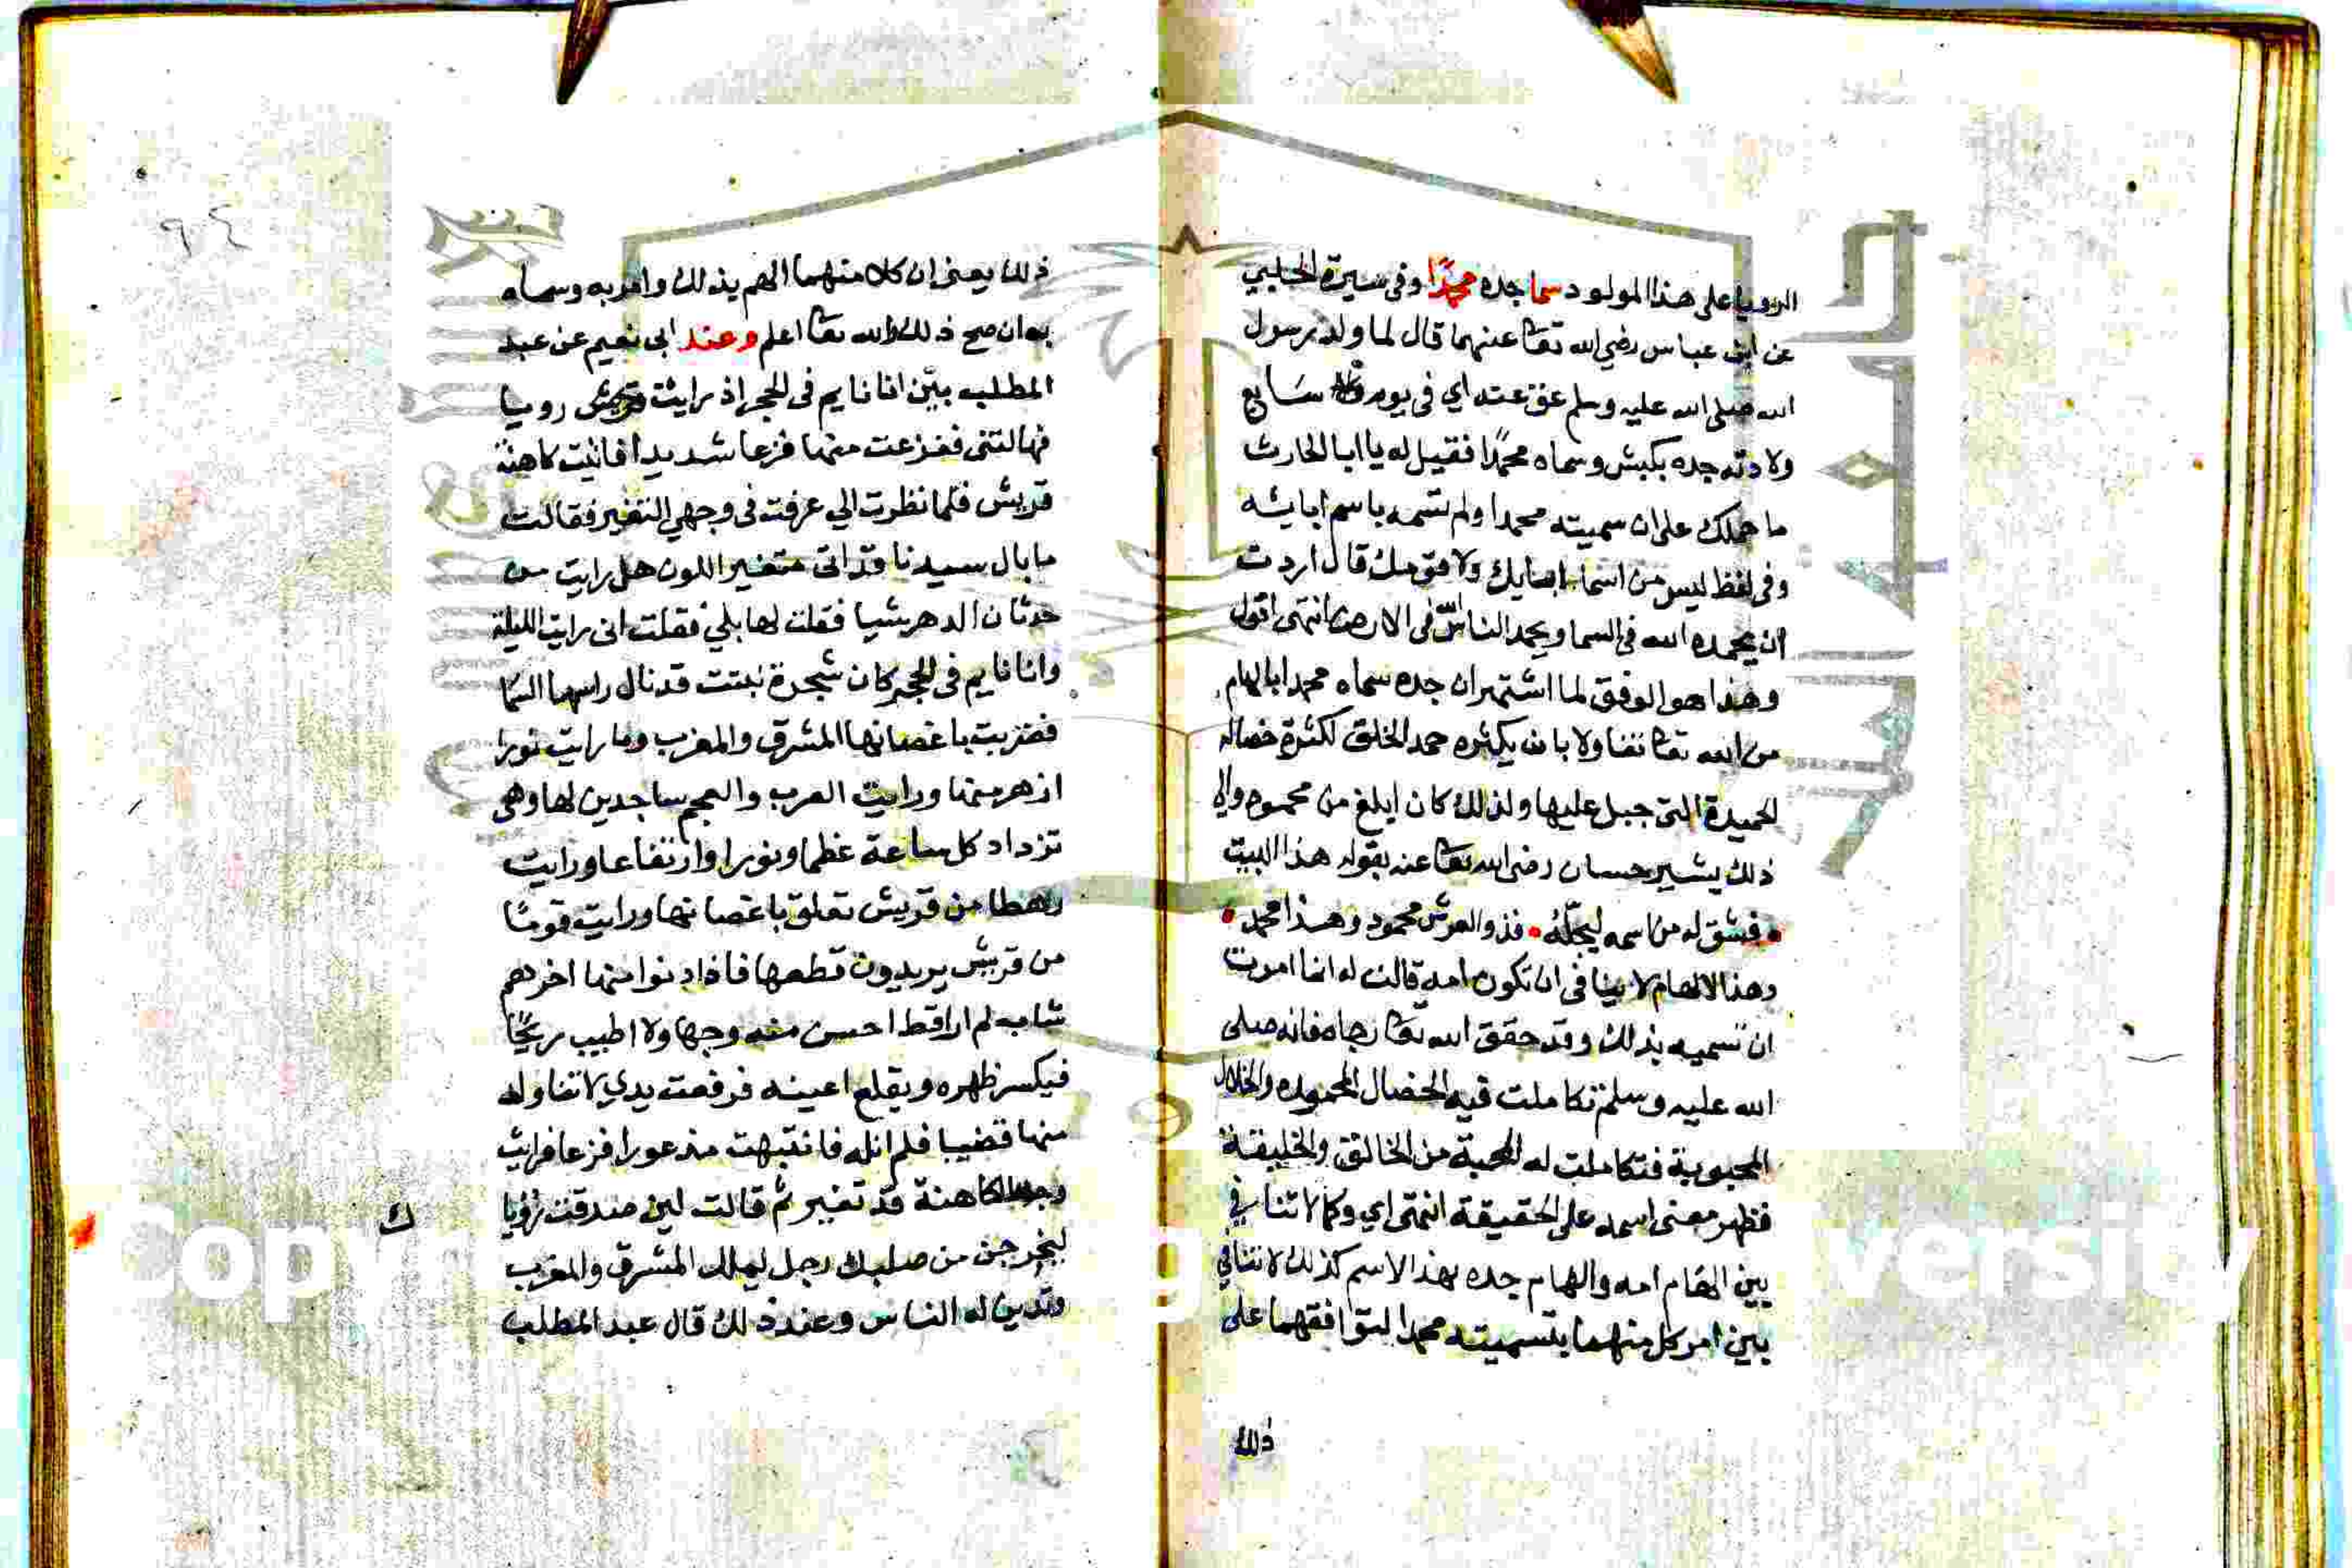 الرويا على هذا المولود سما جده محمدًا وفى سيرة الحلبي
عن ابن عباس رضي الله تعا عنهما قال لما ولد رسول
الله صلى الله عليه وسلم عق عنه اي فى يوم سابع
ولادته جده بكبش وسماه محمدًا فقيل له يا ابا الحارث
ما حملك على ان سميته محمدا ولم تسمه باسم ابايه
وفى لفظ ليس من اسما ابايك ولا قومك قال اردت
ان يحمده الله فى السما ويحمد الناس فى الارض انتهى اقول
وهذا هو الموفق لما اشتهر ان جده سماه محمدا بالهام
من الله تعا تفاولا بان يكثره حمد الخلق لكثرة خصاله
الحميدة التى جبل عليها ولذلك كان ابلغ من محمود والى
ذلك يشير حسان رضى الله تعا عنه بقوله هذا البيت
وفشق له من اسمه ليجلّهُ فذو العرش محمود وهذا محمد
وهذا الالهام لا ينافى ان تكون امه قالت له انها امرت
ان تسميه بذلك وقد حقق الله تعا رجاه فانه صلى
الله عليه وسلم تكاملت فيه الخصال المحموده والخلال
المحبوبة فتكاملت له المحبة من الخالق والخليقة
فظهر معنى اسمه على الحقيقة انتهى اي وكما لا تنافي
بين الهام امه والهام جده بهذا الاسم كذلك لا تنافي
بين امر كل منهما بتسميته محمدا لتوافقهما على
ذلك
٩٤
ذلك يعنى ان كلا منهما الهم بذلك وامر به وسماه
به ان صح ذلك والله تعا اعلم وعند ابى نعيم عن عبد
المطلب بيّن انا نايم فى الحجر اذ رايت رويا
فهالتنى ففزعت منها فزعا شديدا فاتيت كاهنة
قريش فلما نظرت الي عرفت فى وجهي التغير فقالت
ما بال سيدنا قد اتى متغير اللون هل رايت من
حدثان الدهر شيا فقلت لها بلي فقلت انى رايت الليلة
وانا نايم فى الحجر كان شجرة نبتت قد نال راسها السما
فضربت باغصانها المشرق والمغرب وما رايت نورا
ازهر منها ورايت العرب والعجم ساجدين لها وهى
تزداد كل ساعة عظما ونورا وارتفاعا ورايت
رهطا من قريش تعلق باغصانها ورايت قومًا
من قريش يريدون قطعها فاذا دنوا منها اخرهم
شاب لم ار اقط احسن منه وجها ولا اطيب ريحًا
فيكسر ظهره ويقلع اعينه فرفعت يدي لاتناوله
منها قضيبا فلم انله فانتبهت مذعورا فزعا فرايت
وجه الكاهنة قد تغير ثم قالت لين صدقت رؤيا
ك
ليخرجن من صلبك رجل يملك المشرق والمغرب
وتدين له الناس وعند ذلك قال عبد المطلب